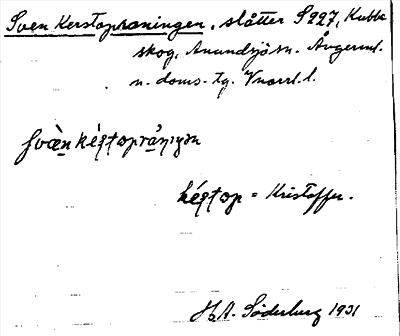 Sven Kerstopraningen, slåtter S227, Kubbe
skog, Anundsjö sn. Ångerml.
n. doms. tg. Vnorrl. l.
kes̨top = Kristoffer.
H.A. Söderberg 1931